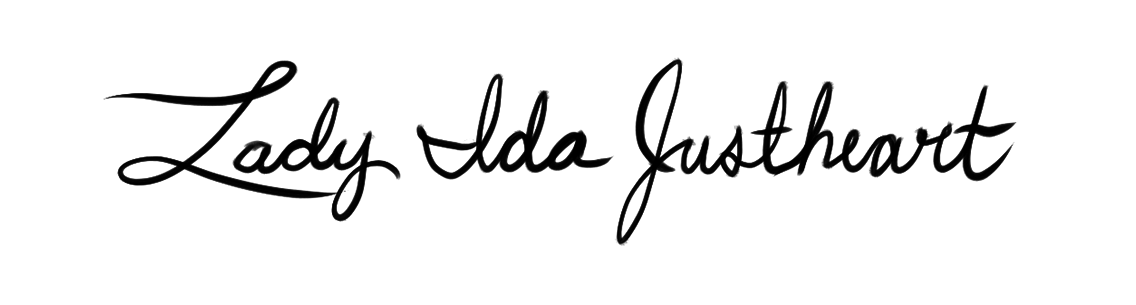 Lady Ida Justheart